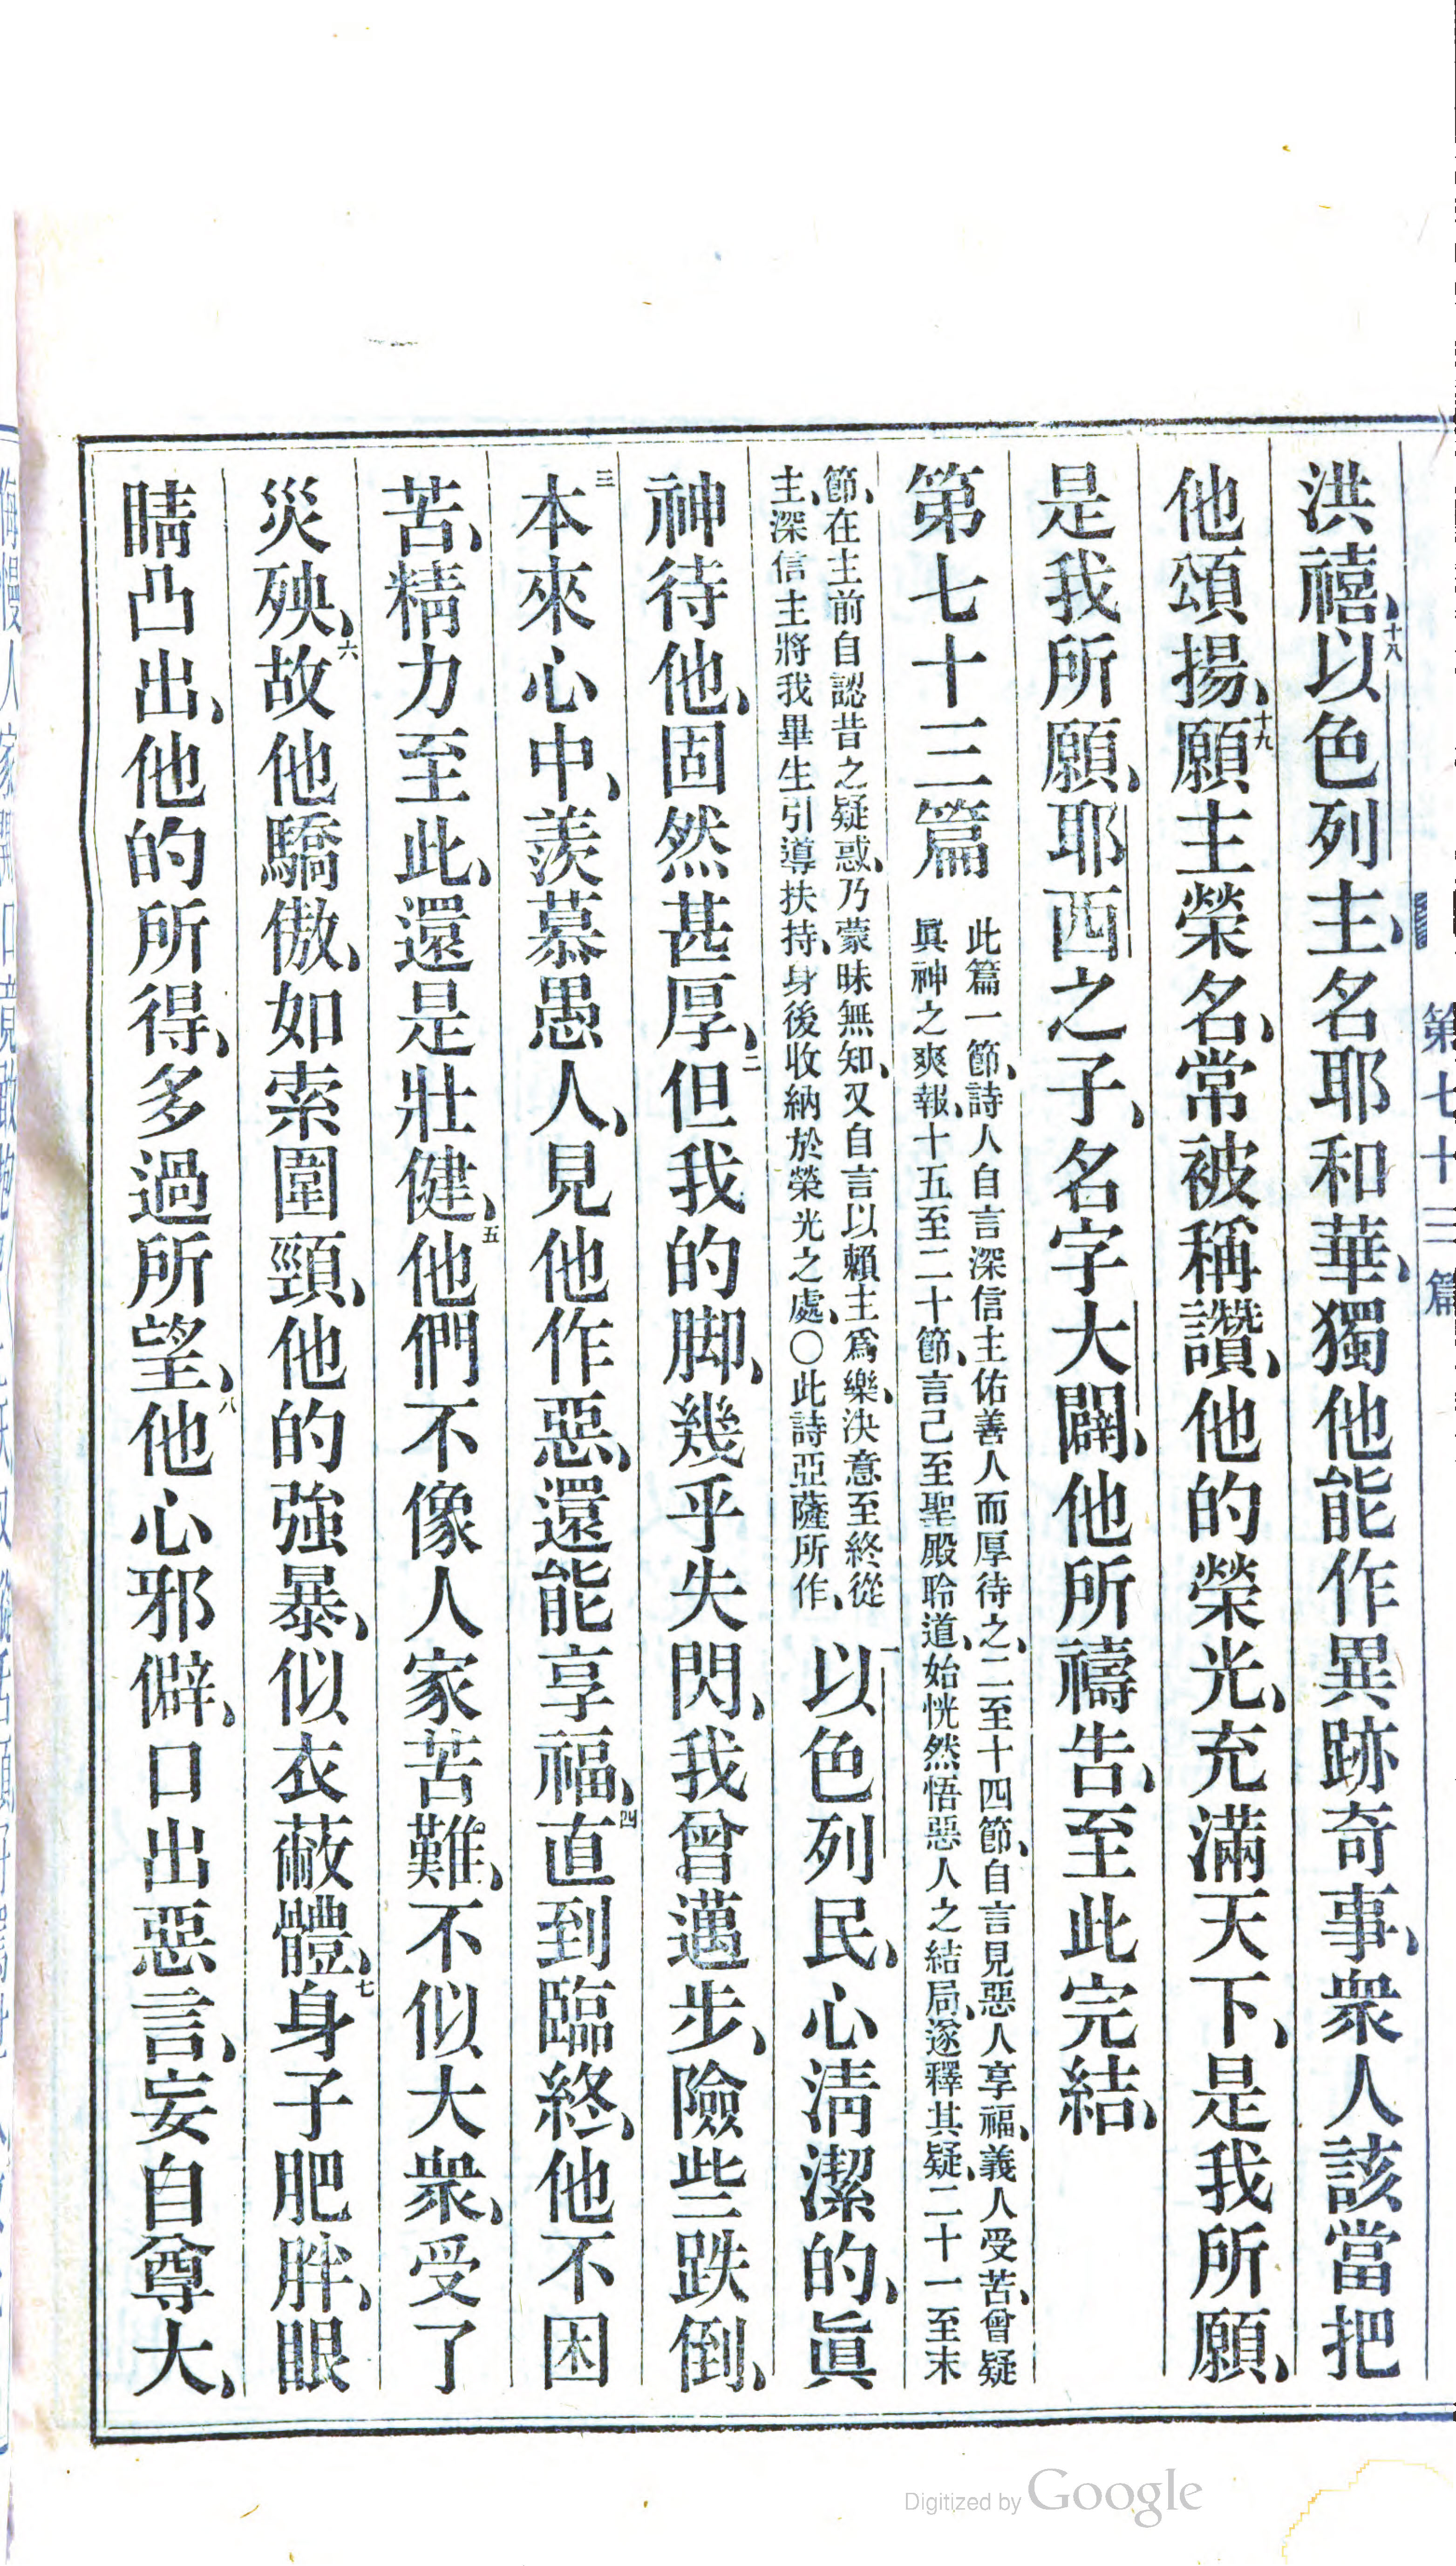 第七十三篇
洪禧、十八以色列主、名耶和華、獨他能作異跡奇事、衆人該當把
他頌揚、十九願主榮名、常被稱讚、他的榮光、充滿天下、是我所願、
是我所願、耶西之子、名字大闢、他所禱告、至此完結、
第七十三篇
此篇一節、詩人自言深信主佑善人而厚待之、二至十四節、自言見惡人享福、義人受苦、曾疑
眞神之爽報、十五至二十節、言己至聖殿聆道、始恍然悟惡人之結局、遂釋其疑、二十一至末
節、在主前自認昔之疑惑、乃蒙昧無知、又自言以賴主爲樂、決意至終從
主、深信主將我畢生引導扶持、身後收納於榮光之處、○此詩亞薩所作、
一以色列民、心淸潔的、眞
神待他、固然甚厚、二但我的脚、幾乎失閃、我曾邁步、險些跌倒、
三本來心中、羨慕愚人、見他作惡、還能享福、四直到臨終、他不困
苦、精力至此、還是壯健、五他們不像人家苦難、不似大衆、受了
災殃、六故他驕傲、如索圍頸、他的強暴、似衣蔽體、七身子肥胖、眼
睛凸出、他的所得、多過所望、八他心邪僻、口出惡言、妄自尊大、
Digitized by Google